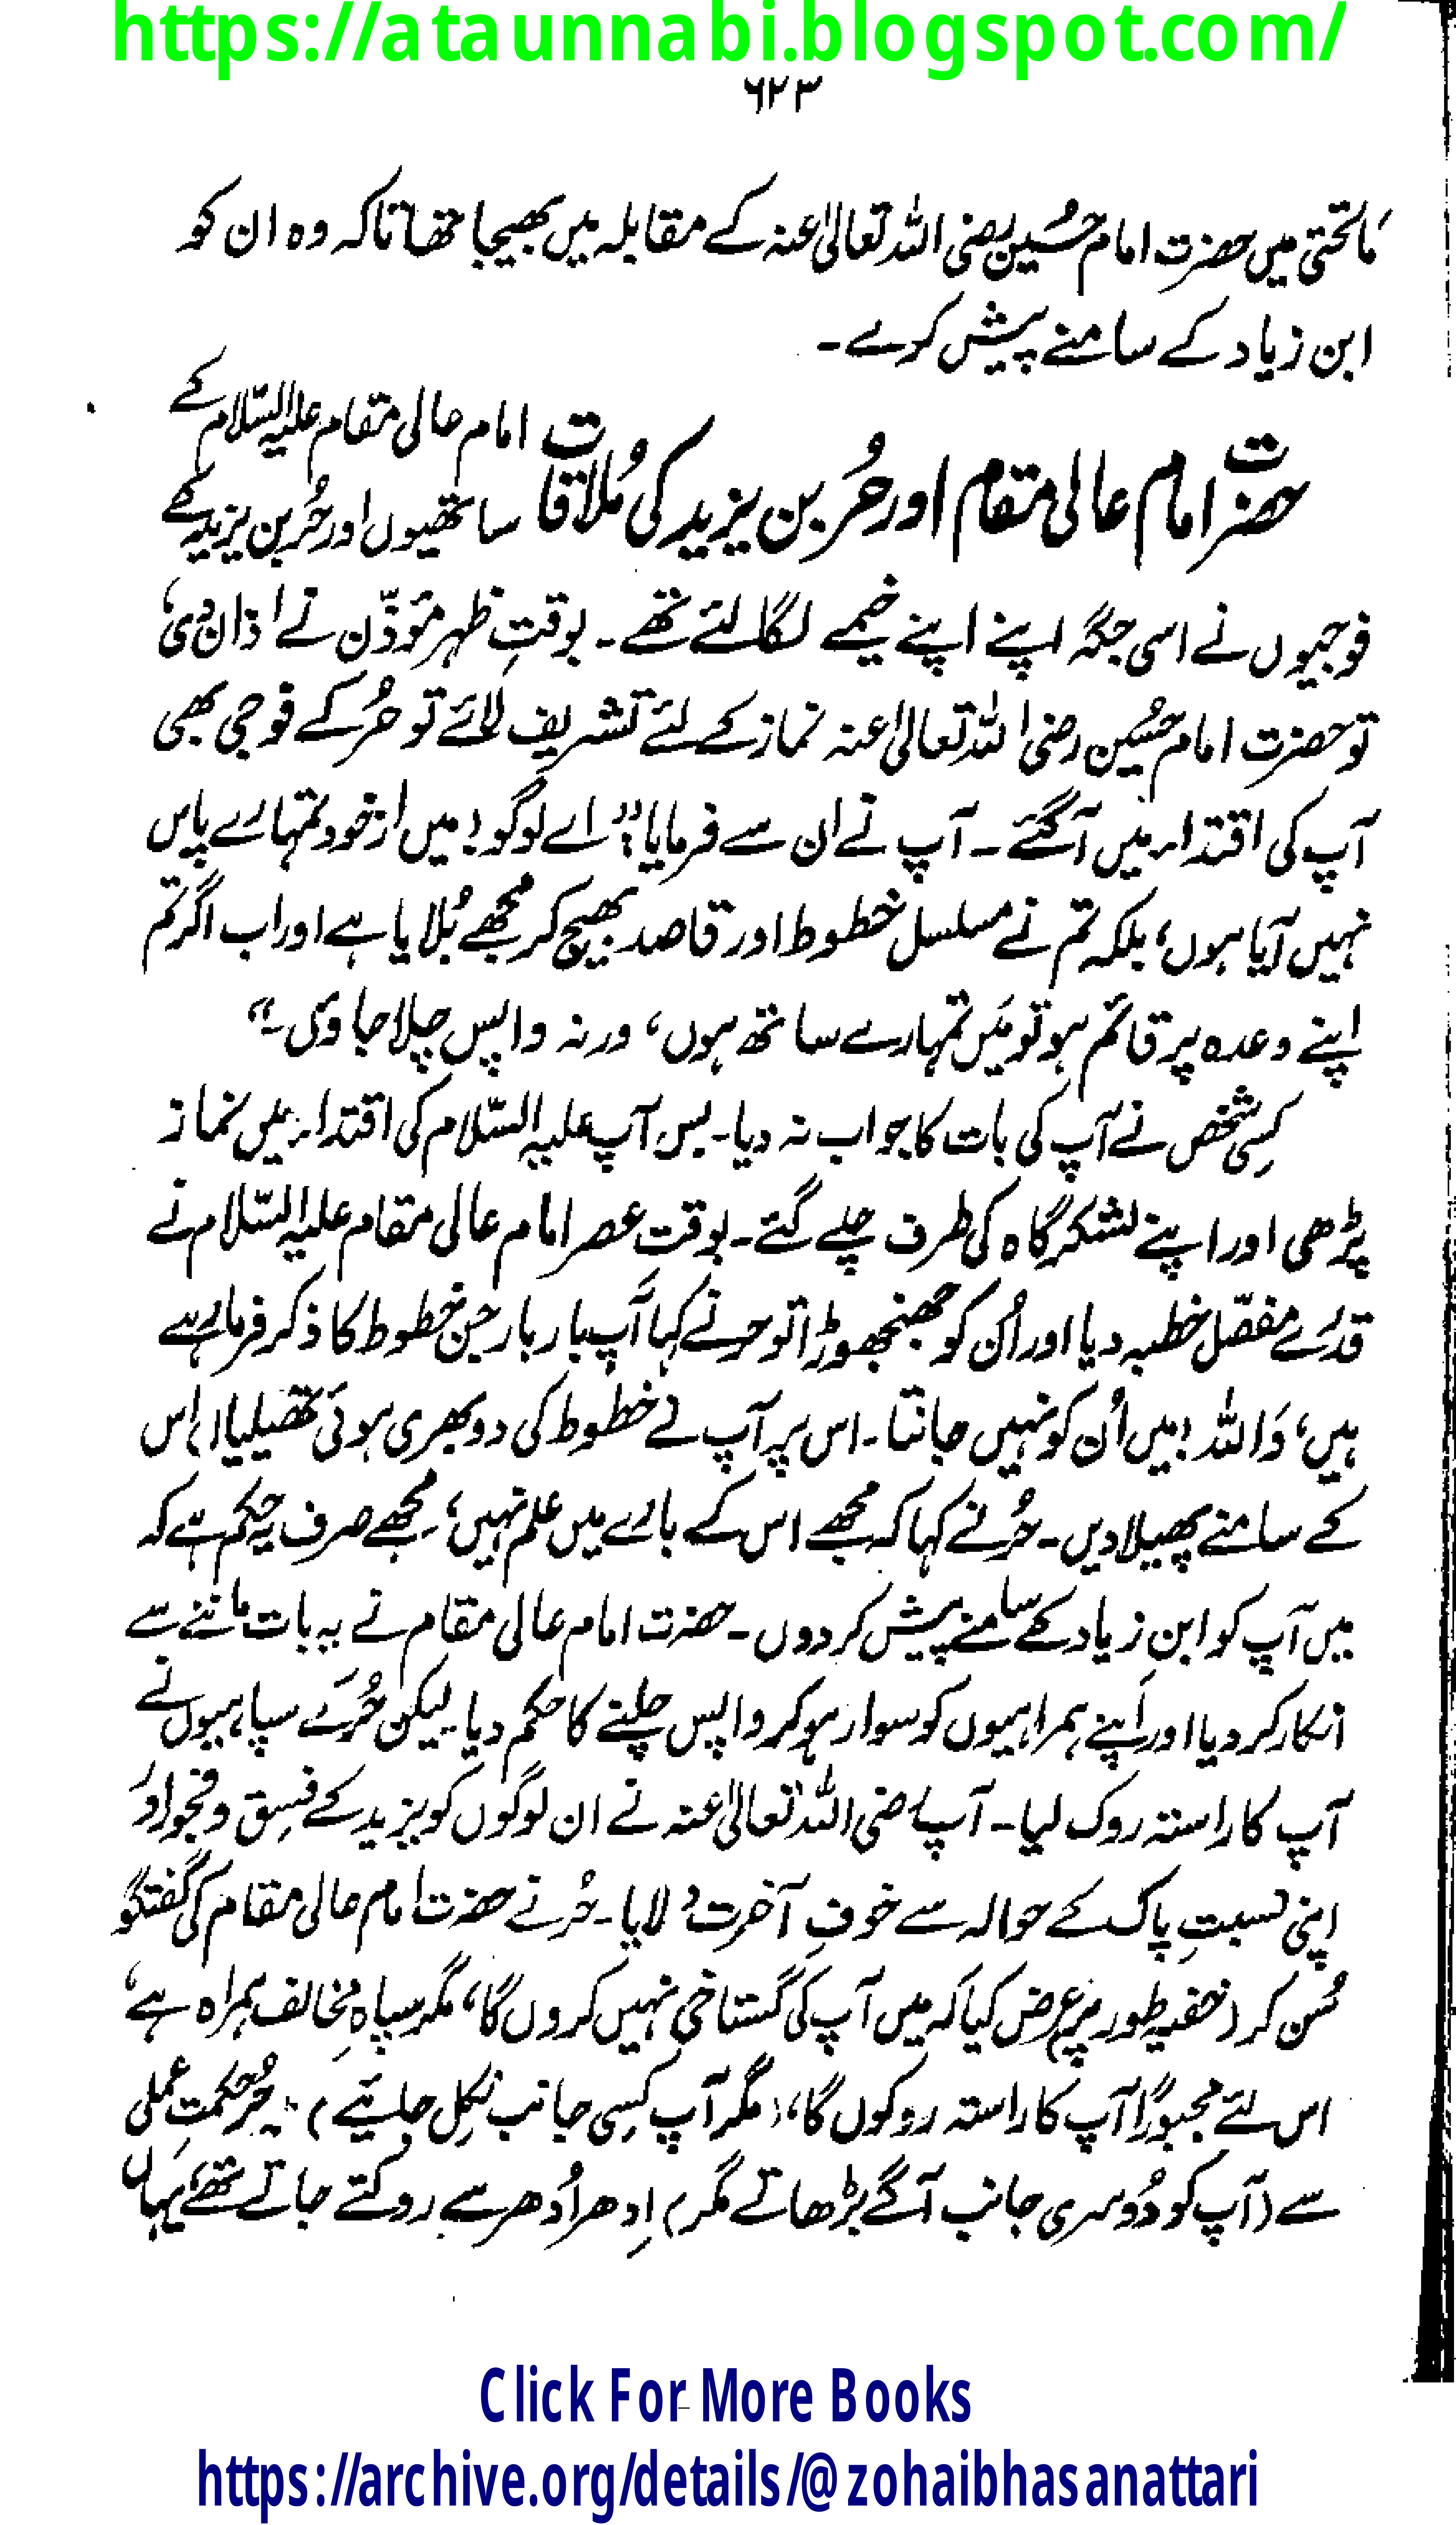 https://ataunnabi.blogspot.com/
۶۲۳
ماتحتی میں حضرت امام حُسین رضی اللہ تعالیٰ عنہ کے مقابلہ میں بھیجا تھا تاکہ وہ ان کو
ابن زیاد کے سامنے پیش کرے۔
حضرت امام عالی مقام اور حُر بن یزید کی مُلاقات
امام عالی مقام علیہ السّلام کے
ساتھیوں اور حُر بن یزید کے
فوجیوں نے اسی جگہ اپنے اپنے خیمے لگا لئے تھے۔ بوقتِ ظہر مؤذّن نے اذان دی،
تو حضرت امام حُسین رضی اللہ تعالیٰ عنہ نماز کے لئے تشریف لائے تو حُر کے فوجی بھی
آپ کی اقتداء میں آگئے۔ آپ نے ان سے فرمایا: ”اے لوگو! میں از خود تمہارے پاس
نہیں آیا ہوں، بلکہ تم نے مسلسل خطوط اور قاصد بھیج کر مجھے بُلایا ہے اور اب اگر تم
اپنے وعدہ پر قائم ہو تو مَیں تمہارے ساتھ ہوں، ورنہ واپس چلا جاوی۔“
کسِی شخص نے آپ کی بات کا جواب نہ دیا۔ بس آپ علیہ السّلام کی اقتداء میں نماز
پڑھی اور اپنے لشکر گاہ کی طرف چلے گئے۔ بوقت عصر امام عالی مقام علیہ السّلام نے
قدرے مفصّل خطبہ دیا اور اُن کو جھنجھوڑا تو حر نے کہا آپ بار بار جن خطوط کا ذکر فرما رہے
ہیں، وَاللہ! میں اُن کو نہیں جانتا۔ اس پر آپ نے خطوط کی دو بھری ہوئی تھیلیاں اس
کے سامنے پھیلا دیں۔ حُر نے کہا کہ مجھے اس کے بارے میں علم نہیں، مجھے صرف یہ حکم ہے کہ
میں آپ کو ابنِ زیاد کے سامنے پیش کر دوں۔ حضرت امام عالی مقام نے یہ بات ماننے سے
انکار کر دیا اور اپنے ہمراہیوں کو سوار ہو کر واپس چلنے کا حکم دیا۔ لیکن حُر کے سپاہیوں نے
آپ کا راستہ روک لیا۔ آپ رضی اللہ تعالیٰ عنہ نے ان لوگوں کو یزید کے فسِق و فجور اور
اپنی نسبتِ پاک کے حوالہ سے خوفِ آخرت دلایا۔ حُر نے حضرت امام عالی مقام کی گفتگو
سُن کر (خفیہ طور پر) عرض کیا کہ میں آپ کی گستاخی نہیں کروں گا، مگر سپاہِ مخالف ہمراہ ہے،
اس لئے مجبوراً آپ کا راستہ روکوں گا، (مگر آپ کسِی جانب نکِل جائیے)۔ حُر حکمتِ عملی
سے (آپ کو دُوسری جانب آگے بڑھاتے مگر) اِدھر اُدھر سے روکتے جاتے تھے، یہاں
Click For More Books
https://archive.org/details/@zohaibhasanattari